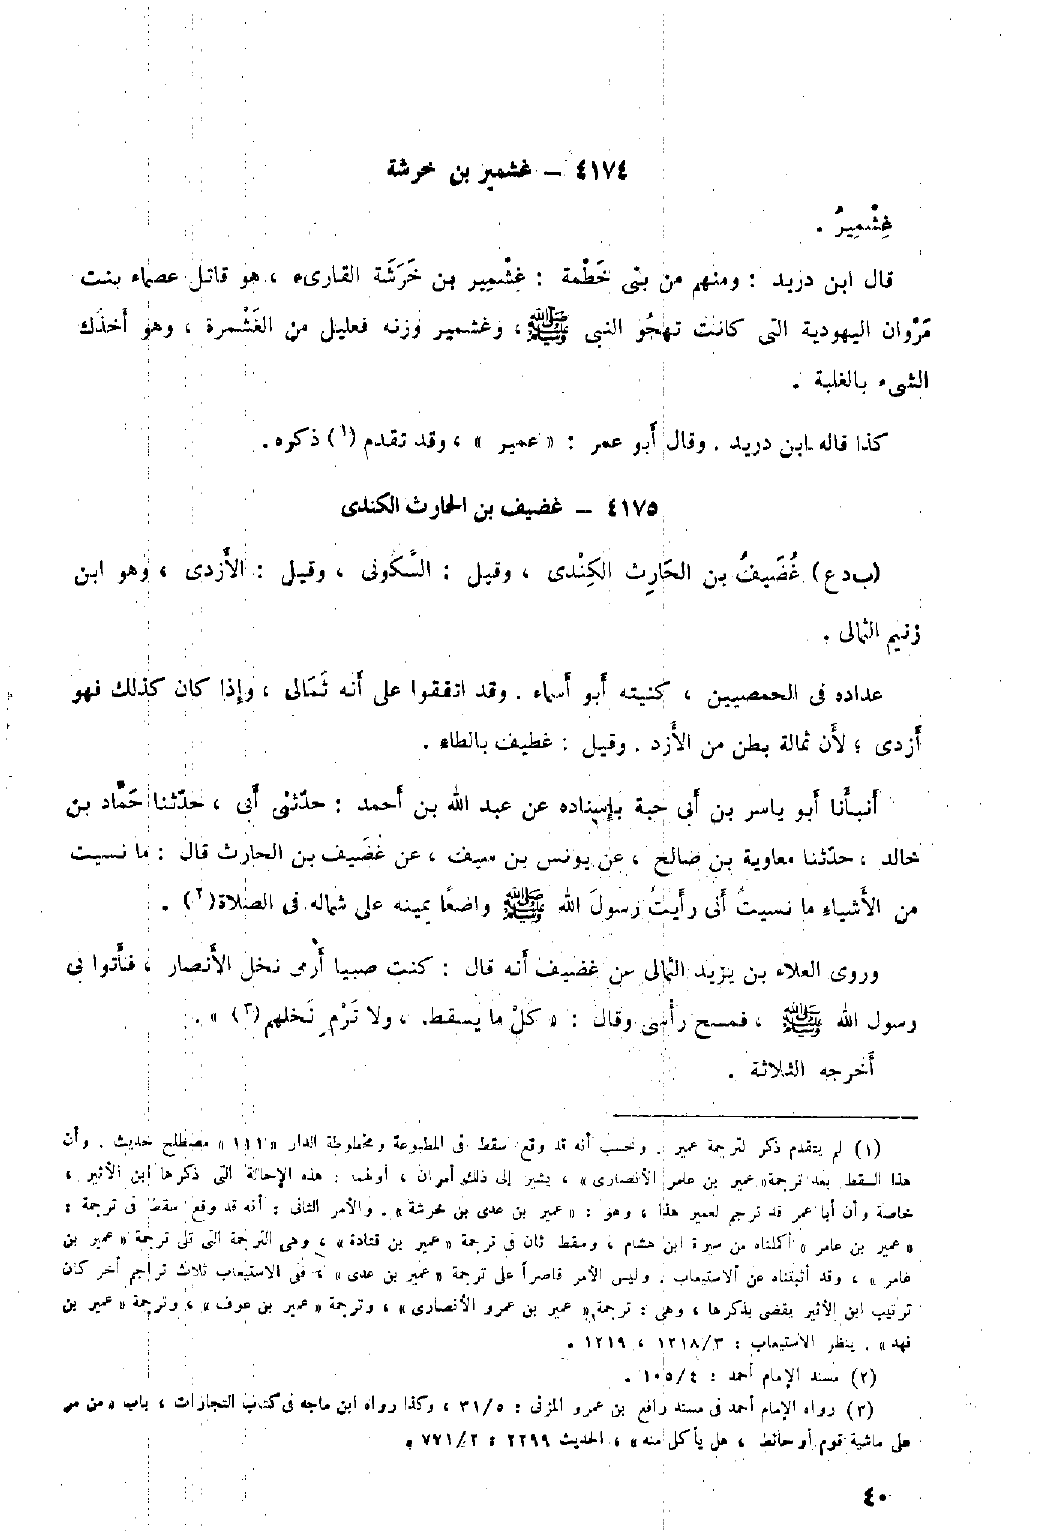 ٤١٧٤ – غشمير بن خرشة
غِشْمِيرُ .
قال ابن دريد : ومنهم من بنى خَطْمة : غِشْمِير بن خَرَشَة القارىء ، هو قاتل عصماء بنت
مَرْوان اليهودية التى كانت تهجُو النبى ﷺ ، وغشمير وزنه فعليل من الغَشْمرة ، وهو أخذك
الشىء بالغلبة .
كذا قاله ابن دريد . وقال أبو عمر : « عمير » ، وقد تقدم (١) ذكره .
٤١٧٥ – غضيف بن الحارث الكندى
(ب د ع) غُضَيفُ بن الحَارِث الكِنْدى ، وقيل : السَّكونى ، وقيل : الأزدى ، وهو ابن
زنيم الثمالى .
عداده فى الحمصيين ، كنيته أبو أسماء . وقد اتفقوا على أنه ثَمَالى ، وإذا كان كذلك فهو
أزدى ؛ لأن ثمالة بطن من الأزد . وقيل : غطيف بالطاء .
أنبأنا أبو ياسر بن أبى حبة بإسناده عن عبد الله بن أحمد : حدّثنى أبى ، حدّثنا حَمَّاد بن
خالد ، حدّثنا معاوية بن صالح ، عن يونس بن سيف ، عن غُضَيف بن الحارث قال : ما نسيت
من الأشياء ما نسيتُ أنى رأيتُ رسولَ الله ﷺ واضعًا يمينه على شماله فى الصلاة (٢) .
وروى العلاء بن يزيد الثمالى عن غضيف أنه قال : كنت صبيا أرمى نخل الأنصار ، فأتوا بى
رسول الله ﷺ ، فمسح رأسى وقال : « كلْ ما يسقط ، ولا تَرْمِ نَخلهم (٣) » .
أخرجه الثلاثة .
(١) لم يتقدم ذكر لترجمة عمير . ونحسب أنه قد وقع سقط فى المطبوعة ومخطوطة الدار « ١١١ » مصطلح حديث . وأن
هذا السقط بعد ترجمة « عمير بن عامر الأنصارى » ، يشير إلى ذلك أمران ، أولهما : هذه الإحالة التى ذكرها ابن الأثير ،
خاصة وأن أبا عمر قد ترجم لعمير هذا ، وهو : « عمير بن عدى بن خرشة » . والأمر الثانى : أنه قد وقع سقط فى ترجمة :
« عمير بن عامر » أكملناه من سيرة ابن هشام ، وسقط ثان فى ترجمة « عمير بن قتادة » ، وهى الترجمة التى تلى ترجمة « عمير بن
عامر » ، وقد أثبتناه عن الاستيعاب . وليس الأمر قاصراً على ترجمة « عمير بن عدى » ، فى الاستيعاب ثلاث تراجم أخر كان
ترتيب ابن الأثير يقضى بذكرها ، وهى : ترجمة « عمير بن عمرو الأنصارى » ، وترجمة « عمير بن عوف » ، وترجمة « عمير بن
فهد » . ينظر الاستيعاب : ٣/١٢١٨ ، ١٢١٩ .
(٢) مسند الإمام أحمد : ٤/١٠٥ .
(٣) رواه الإمام أحمد فى مسند رافع بن عمرو المزنى : ٥/٣١ ، وكذا رواه ابن ماجه فى كتاب التجارات ، باب « من مر
على ماشية قوم أو حائط ، هل يأكل منه » ، الحديث ٢٢٩٩ : ٢/٧٧١ .
٤٠